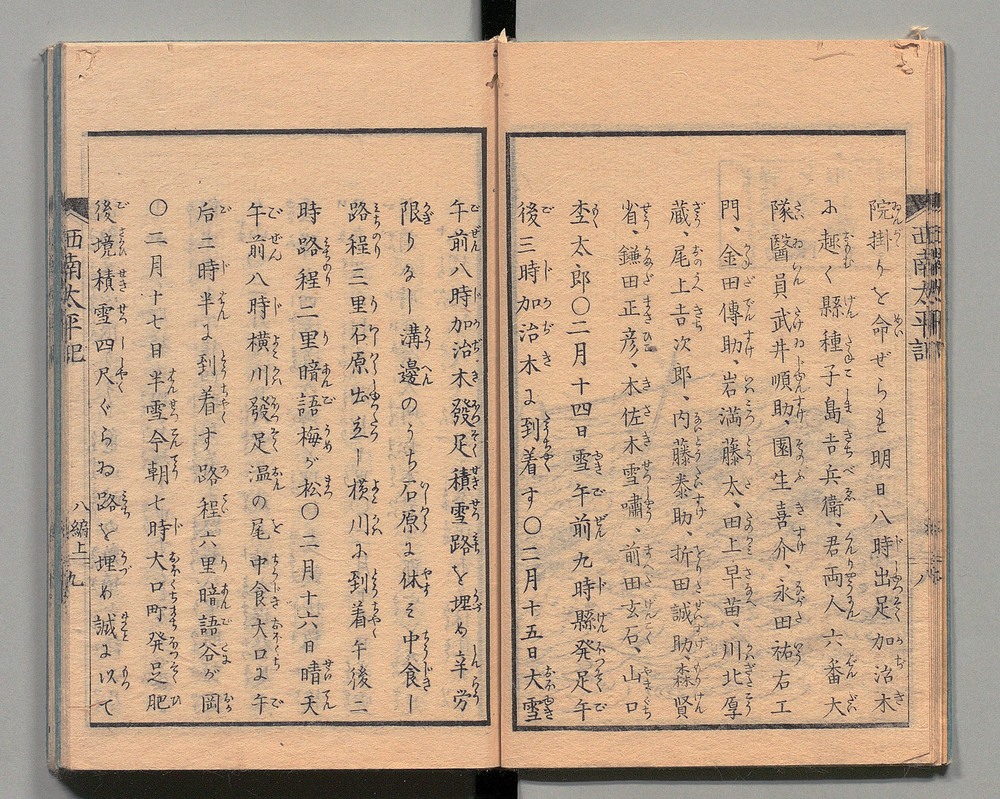 院掛りを命ぜられ明日八時出足加治木
に越く縣種子島吉兵衛、君両人六番大
隊醫員武井順助、園生喜介、永田祐右エ
門、金田傳助、岩満藤太、田上早苗、川北厚
蔵、尾上吉次郎、内藤泰助、折田誠助森賢
省、鎌田正彦、木佐木雪嘯前田玄石、山口
杢太郎〇二月十四日雪午前九時縣発足午
後三時加治木に到着す〇二月十五日大雪
午前八時加治木發足積雪路を埋め辛労
限りなし溝邊のうち石原に休み中食し
路程三里石原出立し横川に到着午後二
時路程三里暗語梅が松〇二月十六日晴天
午前八時横川發足温の尾中食大口に午
后二時半に到着す路程六里暗語谷が岡
〇二月十七日半雪今朝七時大口町発足肥
後境積雪四尺ぐらゐ路を埋め誠に以て
西南太平記
八編上
九